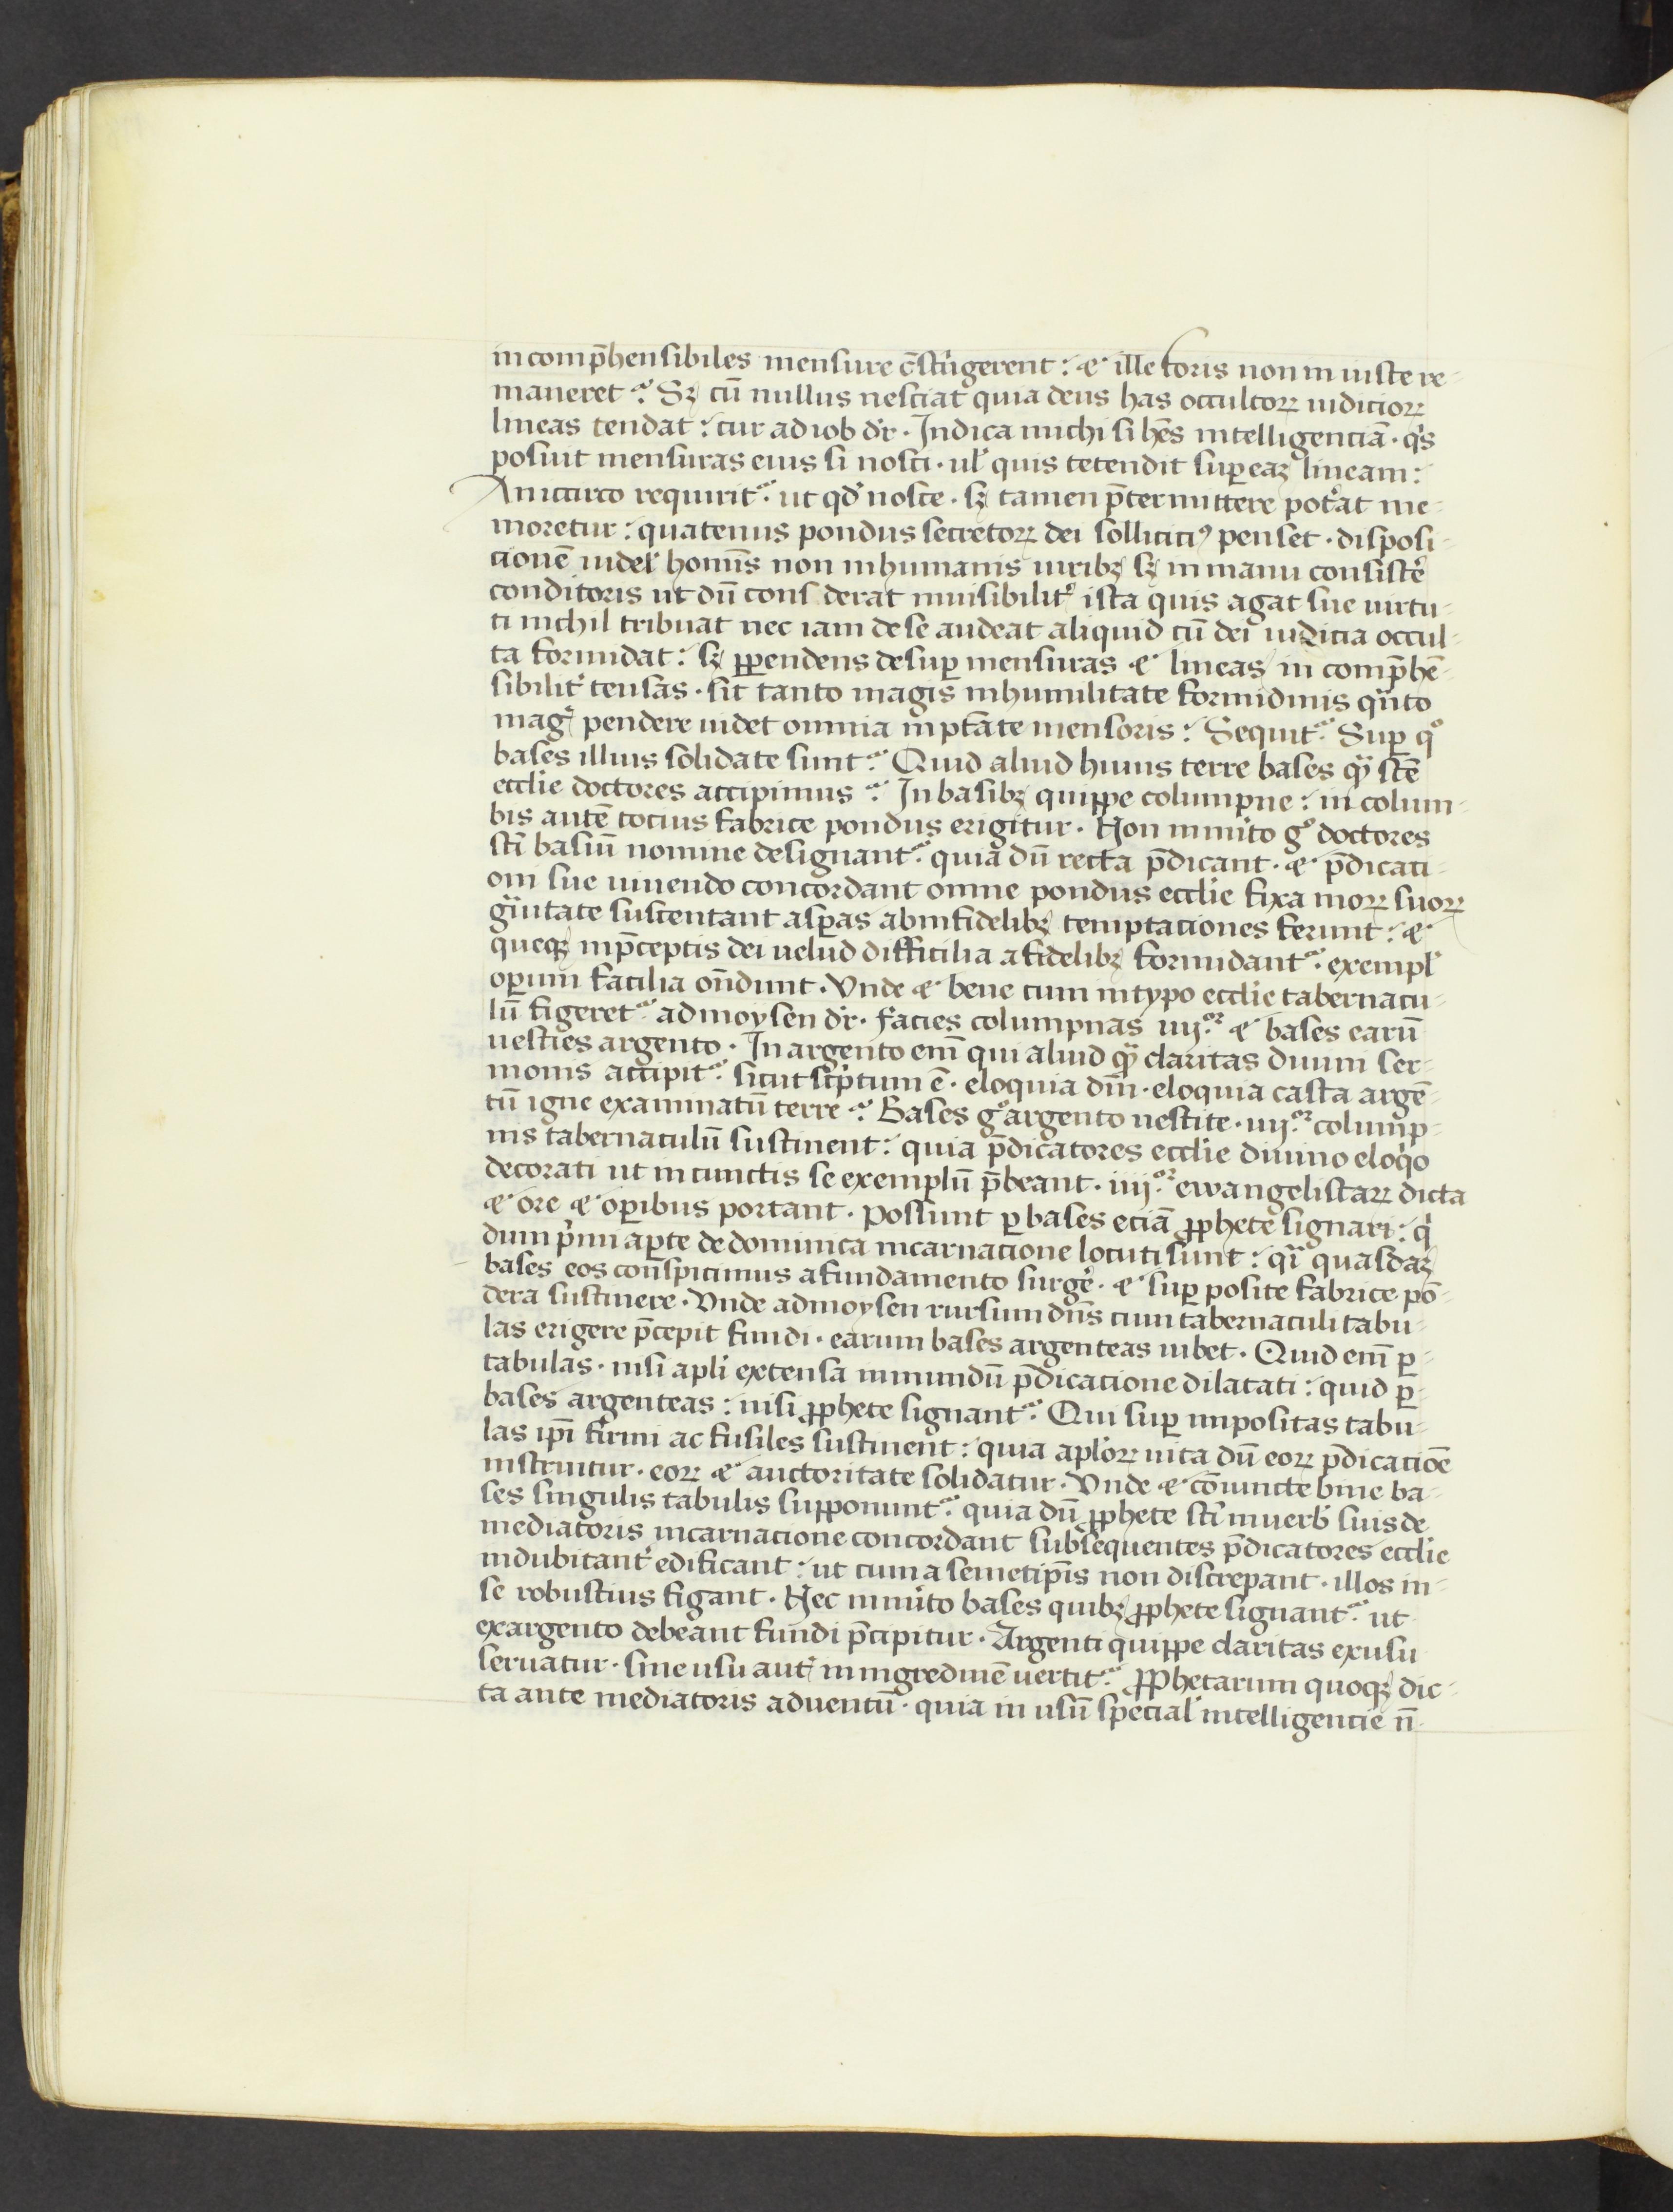 incomp̄hensibiles mensure c̄stͥngerent : ⁊ ille foris non in iuste re-
maneret . Sꝫ cū nullus nesciat quia deus has occultoꝝ iudicioꝝ
lineas tendat : cur ad iob dr̄ . Indica michi si hēs intelligenciā . qͥs
posuit mensuras eius si nosti . ul̕ quis tetendit sup̱ eaꝫ lineam :
An iccirco requirit᷑ . ut qd̕ nosce . sꝫ tamen p̄termittere pot̕at me-
moretur : quatenus pondus secretoꝝ dei solliciti⁹ penset . disposi-
cionē uidel̕ homīs non in humanis uiribꝫ sꝫ in manu consiste̕
conditoris ut dū cons derat inuisibilit̕ ista quis agat sue uirtu-
ti nichil tribuat nec iam de se audeat aliquid cū dei iudicia occul-
ta formidat : sꝫ ꝑpendens desup̱ mensuras ⁊ lineas in comp̄hē-
sibilit̕ tensas . sit tanto magis in humilitate formidinis qͣnto
mag̕ pendere uidet omnia in ptāte mensoris : Sequit᷑ . Sup̱ qͦ
bases illius solidate sunt . Quid aliud huius terre bases qͣꝫ scē
ecclīe doctores accipimus . In basibꝫ quippe columpne : in colum-
bis autē tocius fabrice pondus erigitur . Non inmͥto gͦ doctores
scī basiū nomine designant᷑ . quia dū recta p̄dicant . ⁊ p̄dicati-
oni sue uiuendo concordant omne pondus ecclīe fixa moꝝ suoꝝ
gͣuitate sustentant asꝑas ab infidelibꝫ temptaciones ferunt : ⁊
queqꝫ in p̄ceptis dei uelud difficilia a fidelibꝫ formidant᷑ . exempl̕
oꝑum facilia ōndunt . Vnde ⁊ bene cum in typo ecclīe tabernacu-
lū figeret᷑ ad moysen dr̄ . facies columpnas iiij.ᵒʳ ⁊ bases earū
uesties argento . In argento enī qui aliud qͣꝫ claritas diuini ser-
monis accipit᷑ . sicut scͥptum ē . eloquia dn̄i . eloquia casta argē-
tū igne examinatū terre . Bases gͦ argento uestite . iiij.ᵒʳ colump-
nis tabernaculū sustinent : quia p̄dicatores ecclīe diuino eloqͥo
decorati ut in cunctis se exemplū p̄beant . iiij.ᵒʳ ewangelistaꝝ dicta
⁊ ore ⁊ oꝑibus portant . possunt ꝑ bases eciā ꝓphete signari : qͥ
dum pͥmi aꝑte de dominica incarnacione locuti sunt : qͣi quasdaꝫ
bases eos conspicimus a fundamento surge̕ . ⁊ sup̱ posite fabrice pō-
dera sustinere . Vnde ad moysen rursum dn̄s cum tabernaculi tabu-
las erigere p̄cepit fundi . earum bases argenteas iubet . Quid enī ꝑ
tabulas . nisi apl̕i extensa in mundū p̄dicacione dilatati : quid ꝑ
bases argenteas : nisi ꝓphete signant᷑ . Qui sup̱ impositas tabu-
las ip̄i firmi ac fusiles sustinent : quia apl̕oꝝ uita dū eoꝝ p̄dicaciōe
instruitur . eoꝝ ⁊ auctoritate solidatur . Vnde ⁊ cōiuncte bine ba-
ses singulis tabulis supponunt᷑ . quia dū ꝓphete scī in uerb̕ suis de
mediatoris incarnacione concordant subsequentes p̄dicatores ecclīe
indubitant̕ edificant : ut cum a semetip̄is non discrepant . illos in
se robustius figant . Nec inmͥto bases quibꝫ ꝓphete signant᷑ . ut
ex argento debeant fundi p̄cipitur . Argenti quippe claritas ex usu
seruatur . sine usu aut̕ in nigredinē vertit᷑ . Ꝓphetarum quoqꝫ dic-
ta ante mediatoris aduentū . quia in usū special̕ intelligencie n̄